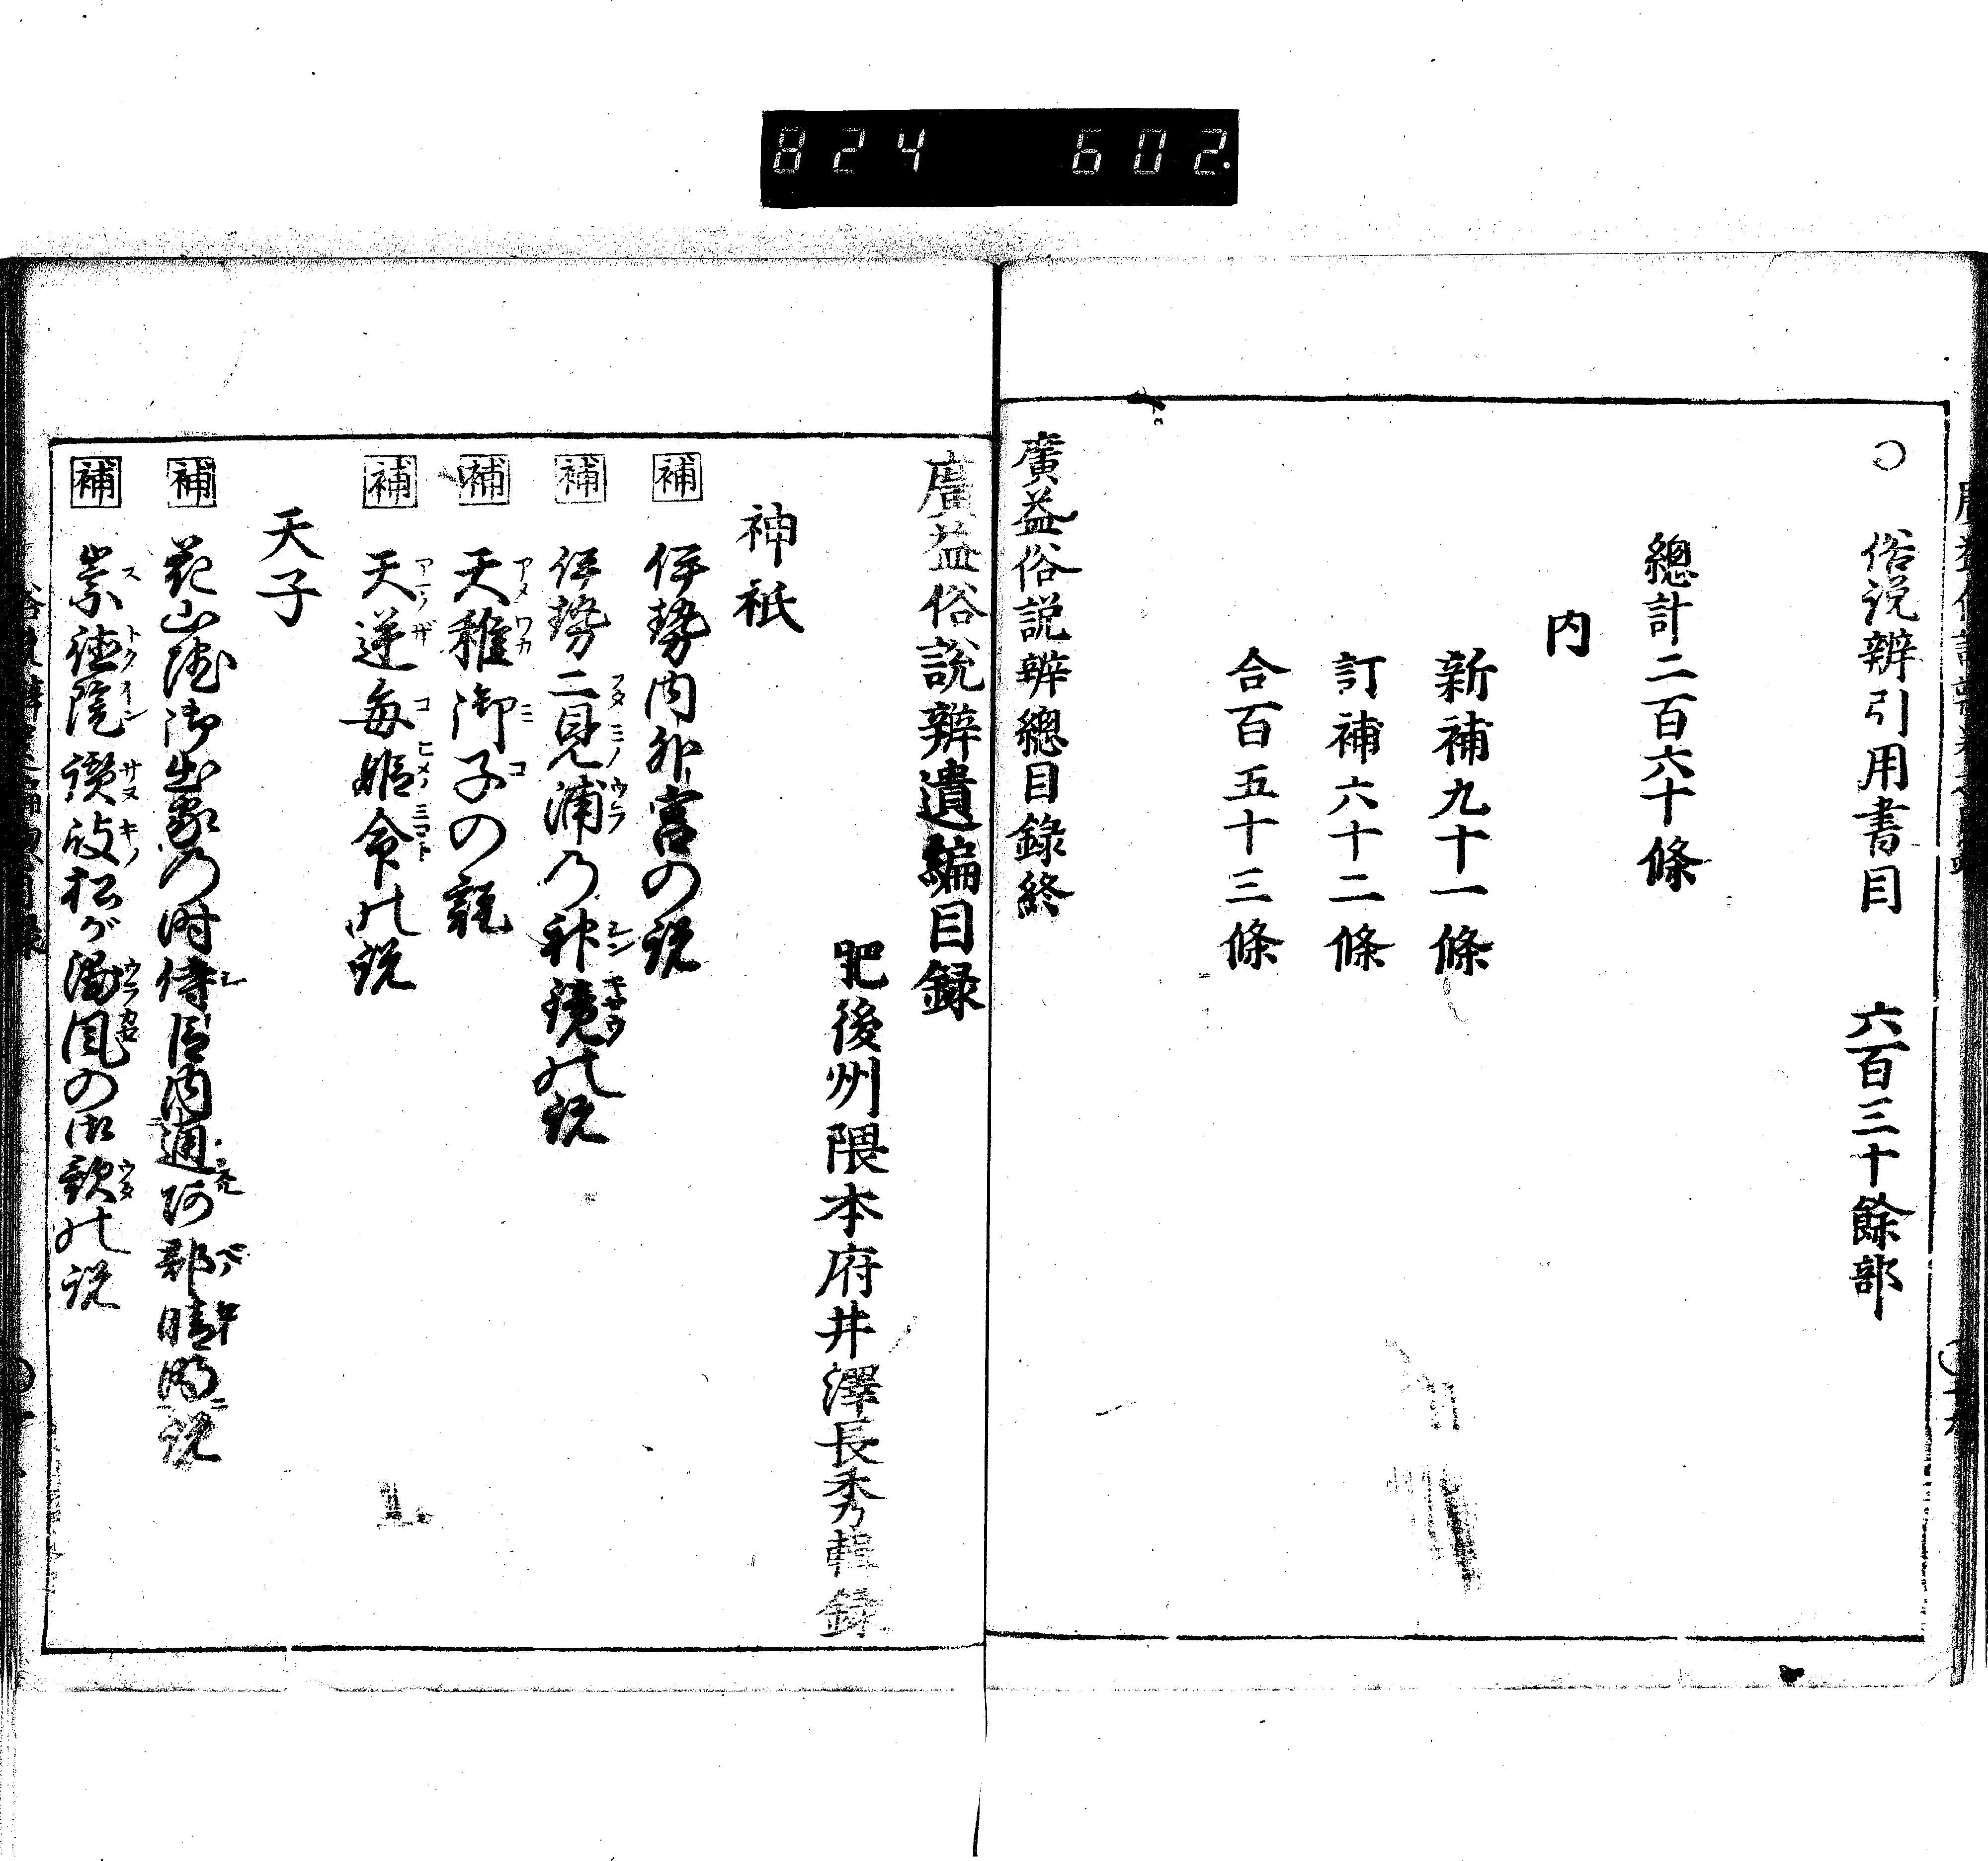 824 602
○ 俗説辨引用書目 六百三十餘部
總計二百六十條
内
新補九十一條
訂補六十二條
合百五十三條
廣益俗説辨總目錄終
廣益俗說辨遺編目録
肥後州隈本府井澤長秀輯録
神祇
補 伊勢内外宮の説
補 伊勢二見浦乃神鏡の説
補 天稚御子の説
補 天逆毎姫命の説
天子
補 花山院御出家乃時侍臣内通阿部晴明説
補 崇徳院讃岐松が浦風の御歌の説